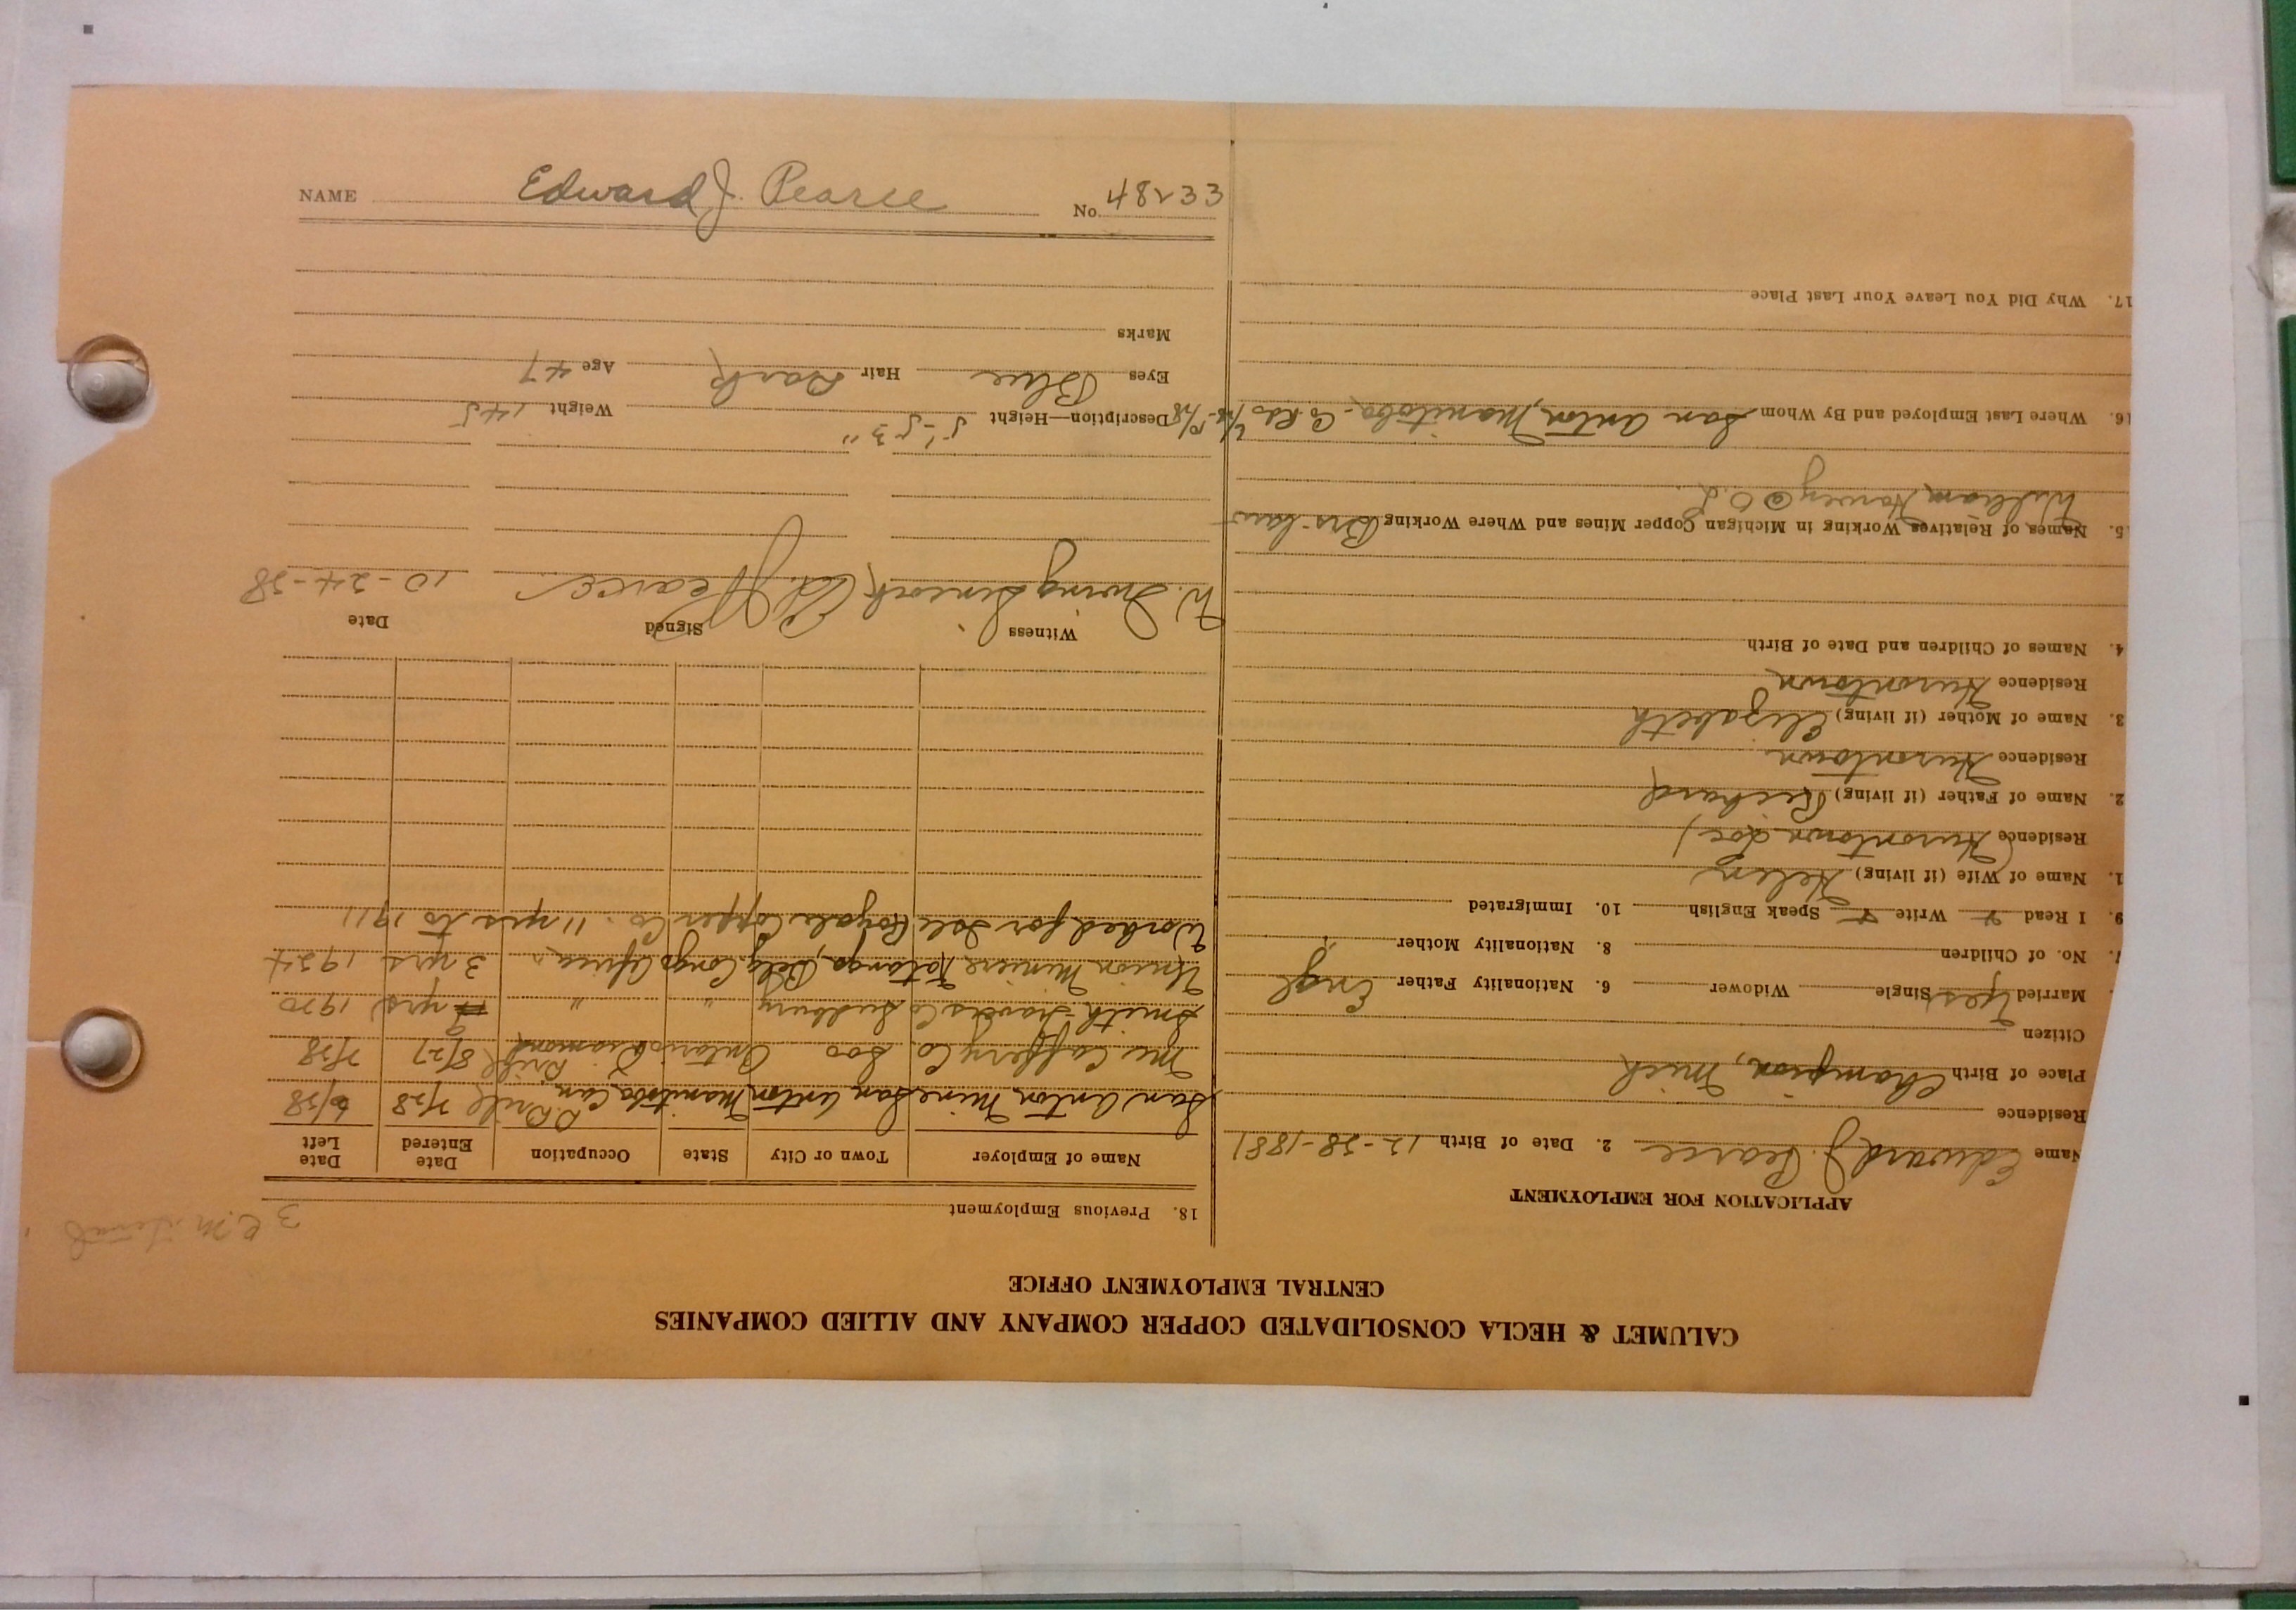 NAME Edward J. Pearce No. 48233
CALUMET & HECLA CONSOLIDATED COPPER COMPANY AND ALLIED COMPANIES
CENTRAL EMPLOYMENT OFFICE
APPLICATION FOR EMPLOYMENT
Name Edward J. Pearce 2. Date of Birth 12-28-1881
Residence
Place of Birth Champion, Mich
Citizen
Married Yes Single Widower 6. Nationality Father Engl
7. No. of Children 8. Nationality Mother "
9. I Read Write Speak English 10. Immigrated
1. Name of Wife (if living) Helen
Residence (Hurontown Loc)
2. Name of Father (if living) Richard
Residence Hurontown
3. Name of Mother (if living) Elizabeth
Residence Hurontown
4. Names of Children and Date of Birth
5. Names of Relatives Working in Michigan Copper Mines and Where Working Bro-law
William Harvey @ O.L.
16. Where Last Employed and By Whom San Anton, Manitoba
17. Why Did You Leave Your Last Place
18. Previous Employment
Name of Employer Town or City State Occupation Date Entered Date Left
San Anton Mine San Anton Manitoba Can D. Drill 7/28
Mc Caffery Co. Soo Ontario Diamond Drill 8/27 7/28
Smith-Travers Co Sudbury " " 9 yrs 1920
Union Miniere Katanga, Belg. Congo Africa " 3 yrs 1924
Worked for Isle Royale Copper Co. 11 yrs to 1911
Witness Signed Date
W. Irving Ed. J. Pearce 10-24-28
Description—Height 5'-5 3" Weight 145
Eyes Blue Hair Dark Age 47
Marks